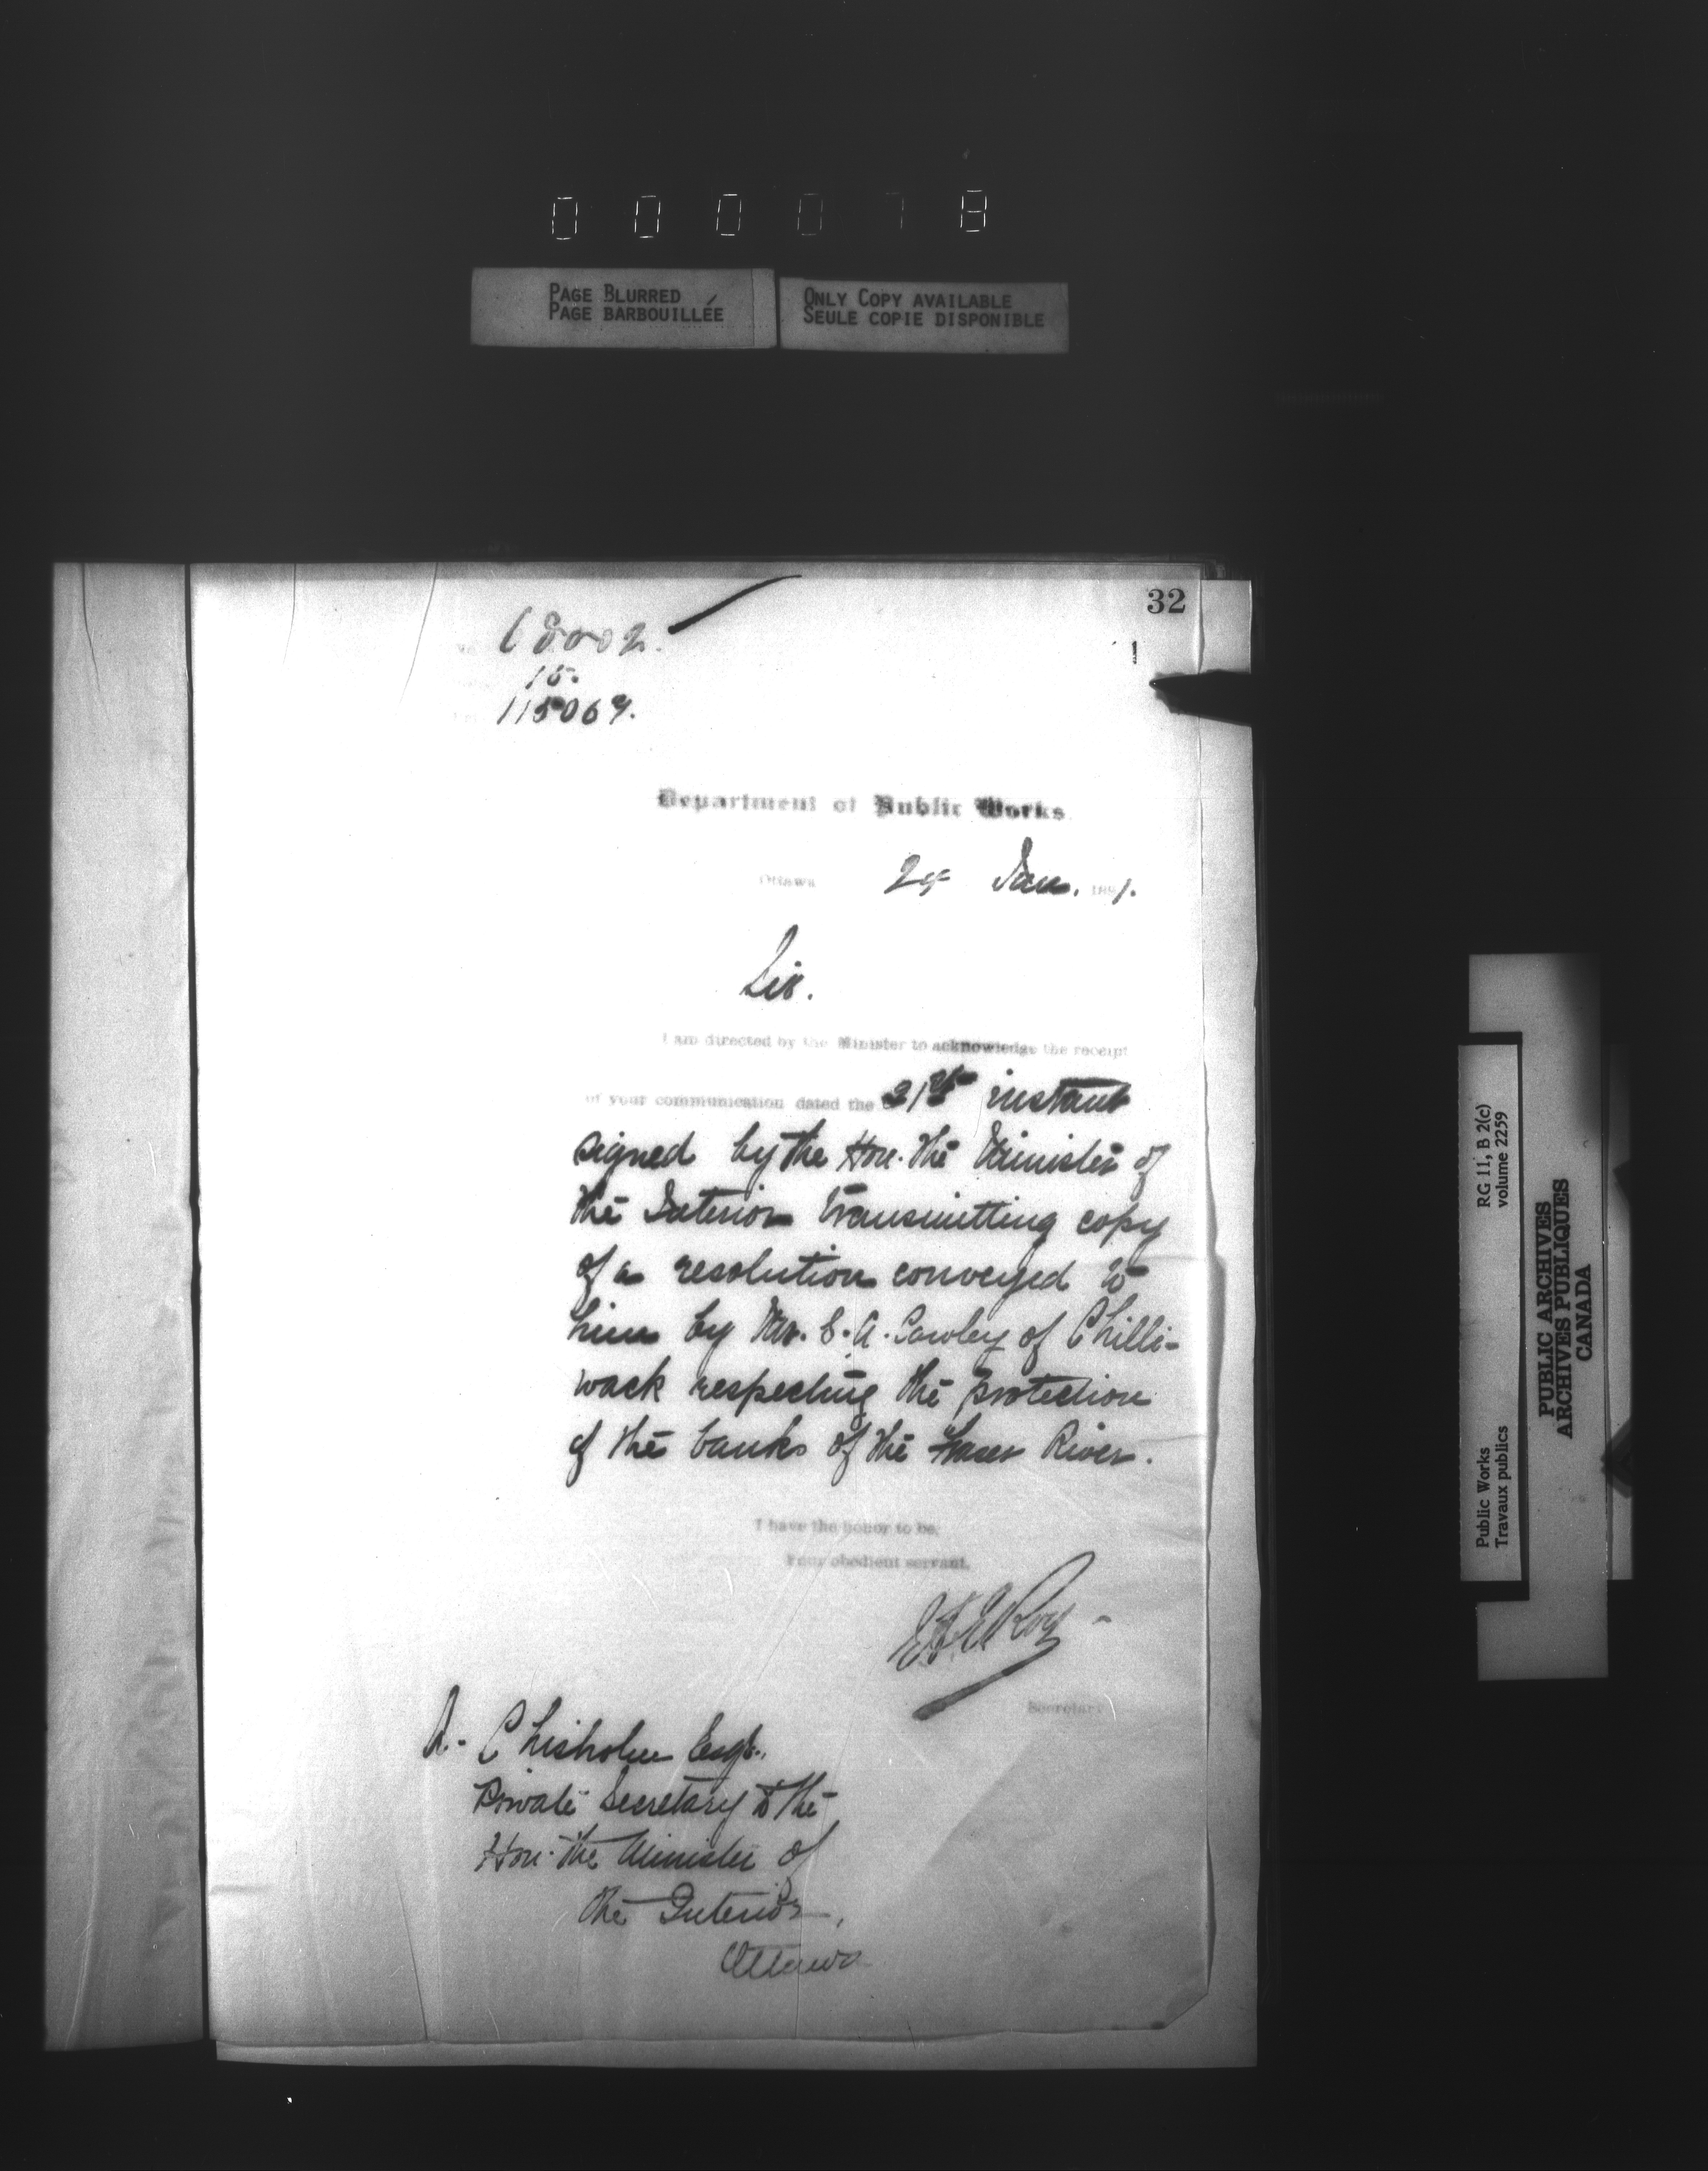 0 0 0 0 7 8
PAGE BLURRED
PAGE BARBOUILLÉE
ONLY COPY AVAILABLE
SEULE COPIE DISPONIBLE
32
1
68002.
15.
115067.
Department of Public Works
Ottawa Jan. 1891.
Sir.
I am directed by the Minister to acknowledge the receipt
of your communication dated the 21st instant
signed by the Hon. the Minister of
the Interior transmitting copy
of a resolution conveyed to
him by Mr. C. A. Cawley of Chilli-
wack respecting the protection
of the banks of the Fraser River.
I have the honor to be,
Your obedient servant,
E. F. E. Roy
Secretary
A. Chisholm Esqr.,
Private Secretary to the
Hon. the Minister of
the Interior,
Ottawa
Public Works
Travaux publics
RG 11, B 2(c)
volume 2259
PUBLIC ARCHIVES
ARCHIVES PUBLIQUES
CANADA